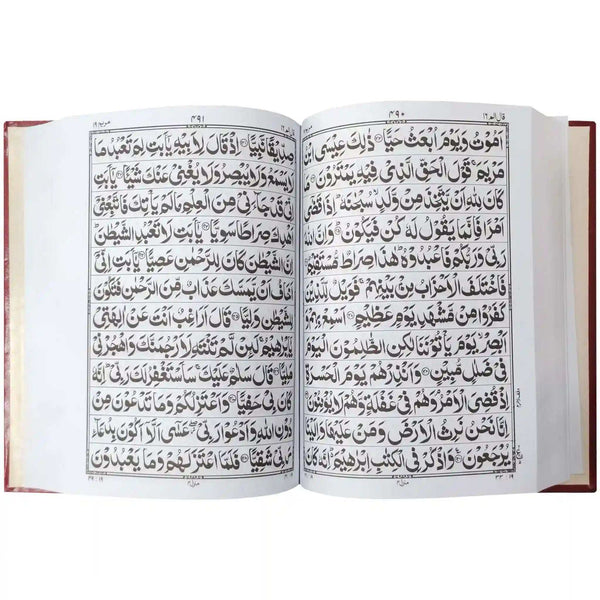 قال الم ١٦
۴۹۰
اَمُوْتُ وَيَوْمَ اُبْعَثُ حَيًّا ۝۳۳ ذٰلِكَ عِيْسَى ابْنُ
مَرْيَمَ قَوْلَ الْحَقِّ الَّذِيْ فِيْهِ يَمْتَرُوْنَ ۝۳۴ مَا
كَانَ لِلّٰهِ اَنْ يَّتَّخِذَ مِنْ وَّلَدٍ سُبْحٰنَهٗ اِذَا قَضٰۤى
اَمْرًا فَاِنَّمَا يَقُوْلُ لَهٗ كُنْ فَيَكُوْنُ ۝۳۵ وَاِنَّ اللّٰهَ
رَبِّيْ وَرَبُّكُمْ فَاعْبُدُوْهُ هٰذَا صِرَاطٌ مُّسْتَقِيْمٌ ۝۳۶
فَاخْتَلَفَ الْاَحْزَابُ مِنْۢ بَيْنِهِمْ فَوَيْلٌ لِّلَّذِيْنَ
كَفَرُوْا مِنْ مَّشْهَدِ يَوْمٍ عَظِيْمٍ ۝۳۷ اَسْمِعْ بِهِمْ وَ
اَبْصِرْ يَوْمَ يَاْتُوْنَنَا لٰكِنِ الظّٰلِمُوْنَ الْيَوْمَ
فِيْ ضَلٰلٍ مُّبِيْنٍ ۝۳۸ وَاَنْذِرْهُمْ يَوْمَ الْحَسْرَةِ
اِذْ قُضِيَ الْاَمْرُ وَهُمْ فِيْ غَفْلَةٍ وَّهُمْ لَا يُؤْمِنُوْنَ ۝۳۹
اِنَّا نَحْنُ نَرِثُ الْاَرْضَ وَمَنْ عَلَيْهَا وَاِلَيْنَا
يُرْجَعُوْنَ ۝۴۰ وَاذْكُرْ فِي الْكِتٰبِ اِبْرٰهِيْمَ اِنَّهٗ كَانَ
۱۹ : ۳۳
قال الم ١٦
۴۹۱
مريم ١٩
صِدِّيْقًا نَّبِيًّا ۝۴۱ اِذْ قَالَ لِاَبِيْهِ يٰۤاَبَتِ لِمَ تَعْبُدُ مَا
لَا يَسْمَعُ وَلَا يُبْصِرُ وَلَا يُغْنِيْ عَنْكَ شَيْـًٔا ۝۴۲ يٰۤاَبَتِ
اِنِّيْ قَدْ جَآءَنِيْ مِنَ الْعِلْمِ مَا لَمْ يَاْتِكَ فَاتَّبِعْنِيْۤ
اَهْدِكَ صِرَاطًا سَوِيًّا ۝۴۳ يٰۤاَبَتِ لَا تَعْبُدِ الشَّيْطٰنَ
اِنَّ الشَّيْطٰنَ كَانَ لِلرَّحْمٰنِ عَصِيًّا ۝۴۴ يٰۤاَبَتِ اِنِّيْۤ
اَخَافُ اَنْ يَّمَسَّكَ عَذَابٌ مِّنَ الرَّحْمٰنِ فَتَكُوْنَ
لِلشَّيْطٰنِ وَلِيًّا ۝۴۵ قَالَ اَرَاغِبٌ اَنْتَ عَنْ اٰلِهَتِيْ
يٰۤاِبْرٰهِيْمُ لَئِنْ لَّمْ تَنْتَهِ لَاَرْجُمَنَّكَ وَاهْجُرْنِيْ
مَلِيًّا ۝۴۶ قَالَ سَلٰمٌ عَلَيْكَ سَاَسْتَغْفِرُ لَكَ رَبِّيْ اِنَّهٗ
كَانَ بِيْ حَفِيًّا ۝۴۷ وَاَعْتَزِلُكُمْ وَمَا تَدْعُوْنَ مِنْ
دُوْنِ اللّٰهِ وَاَدْعُوْا رَبِّيْ عَسٰۤى اَلَّاۤ اَكُوْنَ بِدُعَآءِ
رَبِّيْ شَقِيًّا ۝۴۸ فَلَمَّا اعْتَزَلَهُمْ وَمَا يَعْبُدُوْنَ
منزل ۴